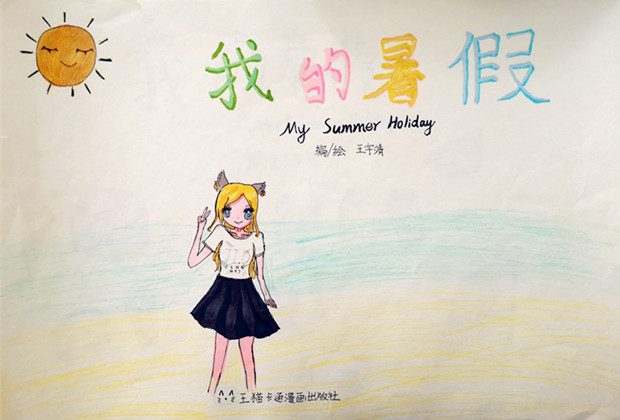 我的暑假
My Summer Holiday
编/绘 王宇清
王猫卡通漫画出版社